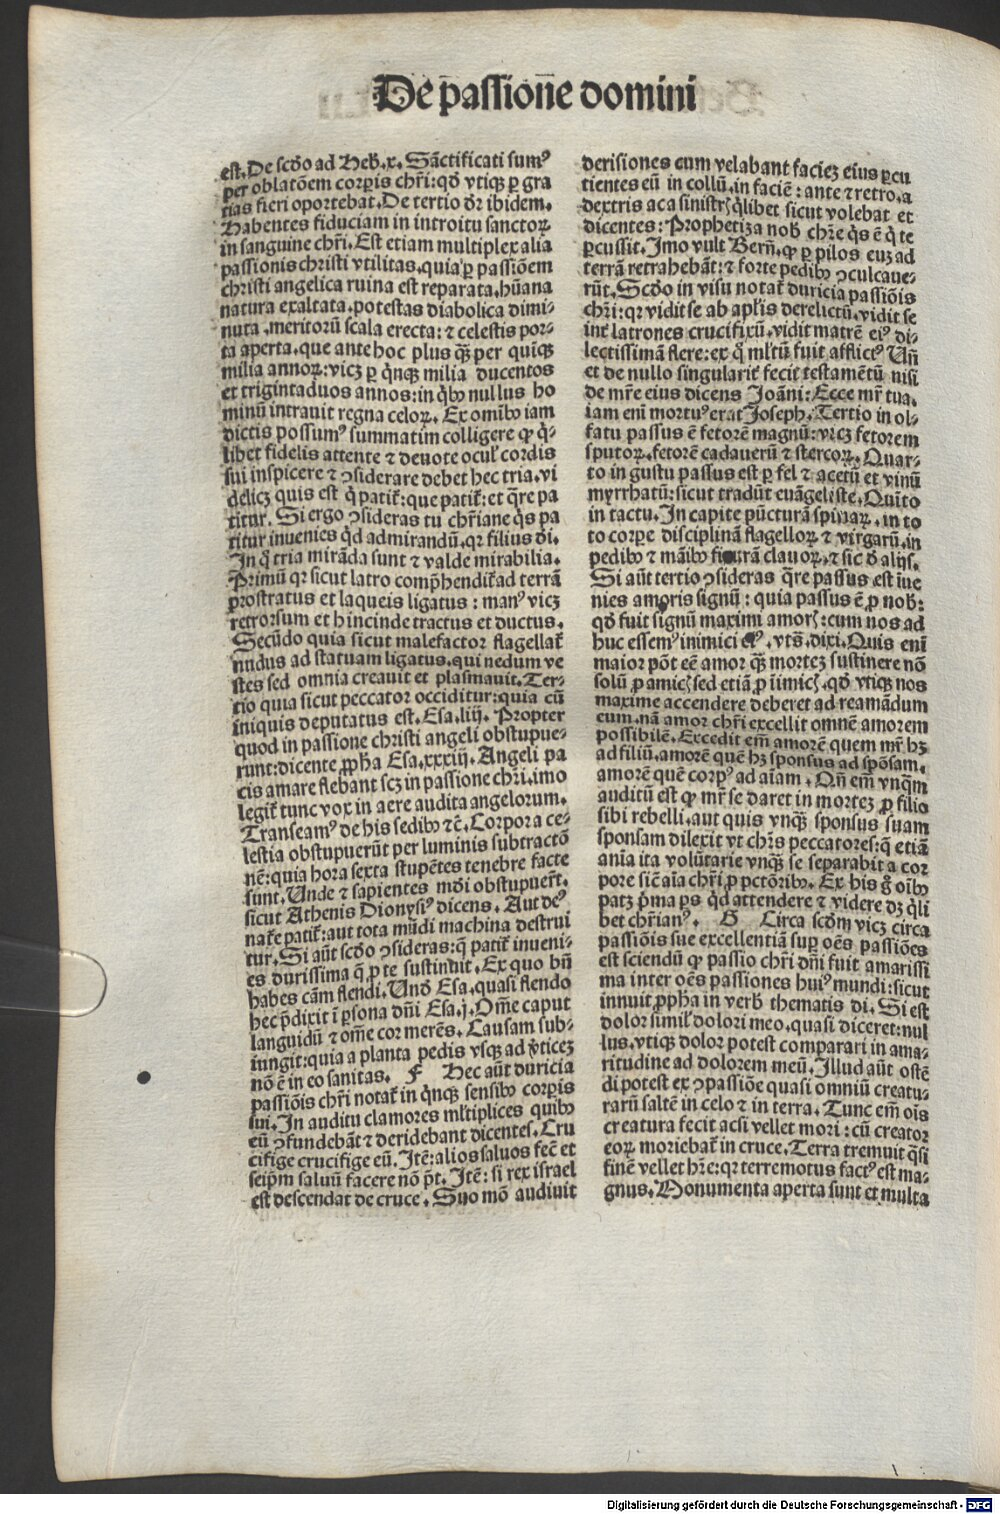 De passiōne domini
est. De scdo ad Heb. x. Sāctificati sumꝰ
per oblatōem corpis chri: qd vtiqꝫ p gra
tias fieri oportebat. De tertio dr ibidem.
Habentes fiduciam in introitu sanctoꝝ
in sanguine chri. Est etiam multiplex alia
passionis christi vtilitas. quia p passiōem
christi angelica ruina est reparata. hūana
natura exaltata. potestas diabolica dimi-
nuta. meritorū scala erecta: ⁊ celestis por-
ta aperta. que ante hoc plus qꝫ per quīqꝫ
milia annoꝝ: vicꝫ p qnqꝫ milia ducentos
et trigintaduos annos: in qbꝰ nullus ho
minū intrauit regna celoꝝ. Ex omībꝰ iam
dictis possumꝰ summatim colligere ꝙ q-
libet fidelis attente ⁊ deuote oculꝭ cordis
sui inspicere ⁊ ꝯsiderare debet hec tria. vi
delicꝫ quis est q patit: que patit: et qre pa
titur. Si ergo ꝯsideras tu chriane qs pa
titur inuenies qd admirandū. qr filius di.
In q tria mirāda sunt ⁊ valde mirabilia.
Primū qr sicut latro comphendit ad terrā
prostratus et laqueis ligatus: manꝰ vicꝫ
retrorsum et hincinde tractus et ductus.
Secūdo quia sicut malefactor flagellat
nudus ad statuam ligatus. qui nedum ve
stes sed omnia creauit et plasmauit. Ter-
tio quia sicut peccator occiditur: quia cū
iniquis deputatus est. Esa. liij. Propter
quod in passione christi angeli obstupue-
runt: dicente ꝓpha Esa. xxxiij. Angeli pa
cis amare flebant scꝫ in passione chri. imo
legit tunc vox in aere audita angelorum.
Transeamꝰ de his sedibꝰ ⁊c̄. Corpora ce-
lestia obstupuerūt per luminis subtractō
nē: quia hora sexta stupētes tenebre facte
sunt. Unde ⁊ sapientes mdi obstupuert.
sicut Athenis Dionysiꝰ dicens. Aut deꝰ
nature patit: aut tota mūdi machina destrui
tur. Si aūt scdo ꝯsideras: q patit inueni-
es durissima q p te sustinuit. Ex quo bn̄
habes cām flendi. Und Esa. quasi flendo
hec pdixit ī psona dn̄i Esa. j. Ome caput
languidū ⁊ ome cor merēs. Causam sub-
iungit: quia a planta pedis vsqꝫ ad vticeꝫ
nō ē in eo sanitas. F Hec aūt duricia
passiōis chri notat in qnqꝫ sensibꝰ corpis
sui. In auditu clamores mltiplices quibꝰ
eū ꝯfundebāt ⁊ deridebant dicentes. Cru
cifige crucifige eū. Itē: alios saluos fec̄ et
seipm saluū facere nō pt. Itē: si rex israel
est descendat de cruce. Suo mō audiuit
derisiones cum velabant facieꝫ eius pcu
tientes eū in collū. in faciē: ante ⁊ retro. a
dextris ac a sinistrꝭ qlibet sicut volebat et
dicentes: Prophetiza nob chre qs ē q te
pcussit. Imo vult Bern̄. ꝙ p pilos euꝫ ad
terrā retrahebāt: ⁊ forte pedibꝰ ꝯculcaue-
rūt. Scdo in visu notat duricia passiōis
chri: qr vidit se ab aplis derelictū. vidit se
int latrones crucifixū. vidit matrē eiꝰ di-
lectissimā flere: ex q mltū fuit afflictꝰ Un̄
et de nullo singularit fecit testamētū nisi
de mre eius dicens Joāni: Ecce mr tua.
iam eni mortuꝰ erat Joseph. Tertio in ol-
fatu passus ē fetorē magnū: vicꝫ fetorem
sputoꝝ. fetorē cadauerū ⁊ stercoꝝ. Quar-
to in gustu passus est p fel ⁊ acetū et vinū
myrrhatū: sicut tradūt euāgeliste. Quīto
in tactu. In capite pūcturā spinaꝝ. in to
to corpe disciplinā flagelloꝝ ⁊ virgarū. in
pedibꝰ ⁊ māibꝰ fixurā clauoꝝ. ⁊ sic d alijs.
Si aūt tertio ꝯsideras qre passus est īue
nies amoris signū: quia passus ē ꝓ nob:
qd fuit signū maximi amorꝭ: cum nos ad
huc essemꝰ inimici eiꝰ. vts̄. dixi. Quis eni
maior pōt eē amor qꝫ morteꝫ sustinere nō
solū ꝓ amicꝭ sed etiā ꝓ īimicꝭ. qd vtiqꝫ nos
maxime accendere deberet ad reamādum
eum. nā amor chri excellit omnē amorem
possibilē. Excedit em̄ amorē quem mr hꝫ
ad filiū. amorē quē hꝫ sponsus ad spōsam.
amorē quē corpꝰ ad aīam. Qn̄ em̄ vnqm̄
auditū est ꝙ mr se daret in morteꝫ ꝓ filio
sibi rebelli. aut quis vnqꝫ sponsus suam
sponsam dilexit vt chrs peccatores: q etiā
anīa ita volūtarie vnqꝫ se separabit a cor
pore sic̄ aīa chri ꝓ pctōribꝰ. Ex his g oībꝰ
patꝫ pma ps qd attendere ⁊ videre dꝫ qli
bet chrianꝰ. G Circa scdm vicꝫ circa
passiōis sue excellentiā sup oēs passiōes
est sciendū ꝙ passio chri dn̄i fuit amarissi
ma inter oēs passiones huiꝰ mundi: sicut
innuit ꝓpha in verbꝭ thematis di. Si est
dolor similꝭ dolori meo. quasi diceret: nul
lus. vtiqꝫ dolor potest comparari in ama-
ritudine ad dolorem meū. Illud aūt ostē
di potest ex ꝯpassiōe quasi omniū creatu-
rarū saltē in celo ⁊ in terra. Tunc em̄ oīs
creatura fecit acsi vellet mori: cū creator
eoꝝ moriebat in cruce. Terra tremuit qsi
finē vellet hre: qr terremotus factꝰ est ma-
gnus. Monumenta aperta sunt et multa
Digitalisierung gefördert durch die Deutsche Forschungsgemeinschaft - DFG